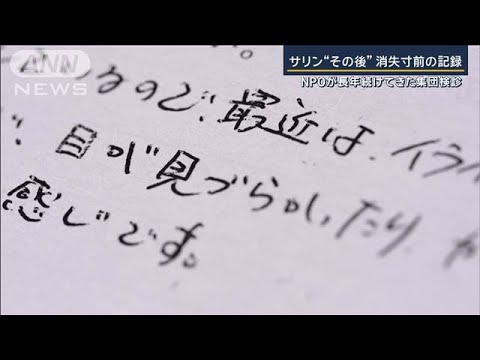 ANN
NEWS
サリン“その後” 消失寸前の記録
NPOが長年続けてきた集団検診
るので、最近は、イライ
目が見づらかったり
感じです。